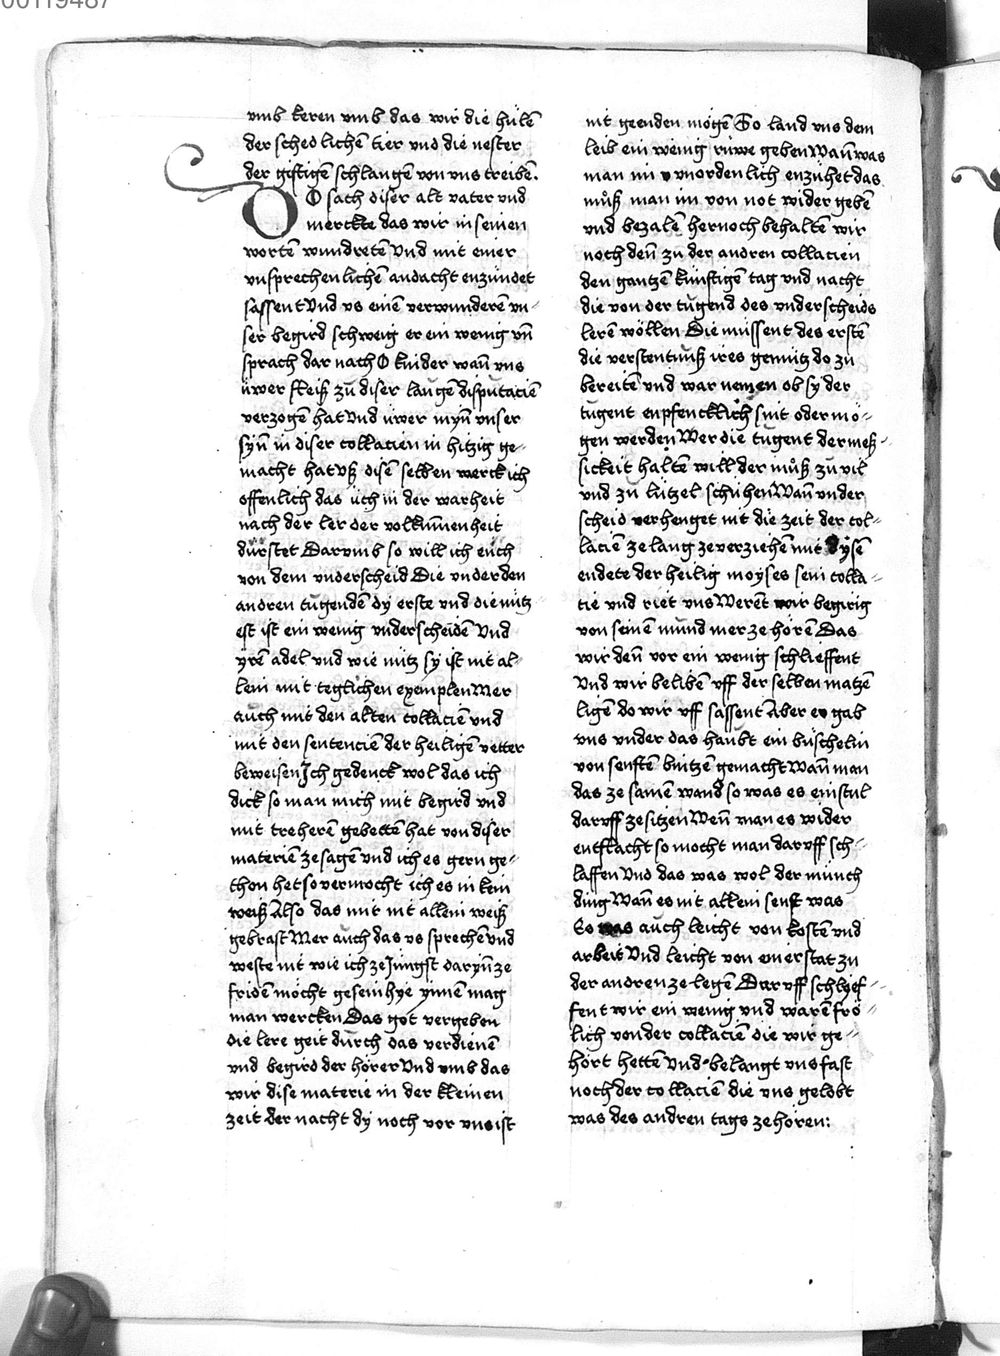 00119487
vmb keren vmb das wir die hülē
der schedlichen tier vnd die nester
der giftigē schlangē von vns treibē.
DO sach diser alt vater vnd
merckte das wir in seinen
wortē wundretē Vnd mit einer
vnsprechenlichē andacht enzündet
sassent Vnd vs einē verwunderē vn-
ser begird schweig er ein wenig vn̄
sprach dar nach O kinder wan̄ vns
üwer fleiß zů diser langē disputaciē
verzogē hat Vnd üwer myn̄ vnser
syn̄ in diser collacien in hitzig ge-
macht hat vß disē selben werck ich
offenlich das üch in der warheit
nach der ler der volkumenheit
dürstet Darvmb so will ich eüch
von dem vnderscheid Die vnder den
andren tugendē dy erste vnd die nütz
est ist ein wenig vnderscheidē Vnd
yrē adel vnd wie nütz sy ist nit al-
lein mit teglichen exemplen Mer
auch mit den alten collaciē vnd
mit den sentenciē der heiligē vetter
beweisen Ich gedenck wol das ich
dick so man mich mit begird vnd
mit treherē gebettē hat von diser
materiē ze sagē vnd ich es gern ge-
thon het so vermocht ich es in kein
weiß Also das mit nit allein weiß
gebrast Mer auch das vs sprechē vnd
weste nit wie ich ze Jungst daryn̄ ze
fridē möcht gesein hye ynnē mag
man wercken Das got vergeben
die lere geit durch das verdienē
vnd begird der hörer Vnd vmb das
wir dise materie in der kleinen
zeit der nacht dy noch vor vns ist
nit geenden mögē So land vns dem
leib ein wenig růwe geben Wan̄ was
man im vnordenlich enzühet das
můß man im von not wider gebē
vnd bezalē hernoch behaltē wir
noch den̄ zu der andren collacien
den gantzē künftigē tag vnd nacht
die von der tugend des vnderscheids
lerē wöllen Die müssent des erstē
die verstentnuß ires gemütz do zu
bereitē vnd war nemen ob sy der
tugent enpfencklich sint oder mö-
gen werden Wer die tugent der meß-
sickeit haltē will der můß zu vil
vnd zu lützel schühen Wan̄ vnder
scheid verhenget nit die zeit der col-
laciē ze lang ze verziehē mit dysē
endete der heilig moyses sein colla-
cie vnd riet vns Werēt wir begirig
von seinē mund mer ze hörē Das
wir den̄ vor ein wenig schlieffent
Vnd wir belibē vff der selben matzē
ligē do wir vff sassent Aber er gab
vns vnder das haubt ein büschelin
von senftē bintzē gemacht Wan̄ man
das ze samē wand so was es ein stul
darvff ze sitzen Wen̄ man es wider
entflacht so mocht man darvff sch-
laffen Vnd das was wol der münch
ding Wan̄ es nit allein senft was
So was auch leicht von kostē vnd
arbeit Vnd leicht von einer stat zu
der andren ze legē Darvff schlyef-
fent wir ein wenig vnd warē frö-
lich von der collaciē die wir ge-
hört hettē Vnd belangt vns fast
noch der collaciē die vns gelobt
was des andren tags ze hören: